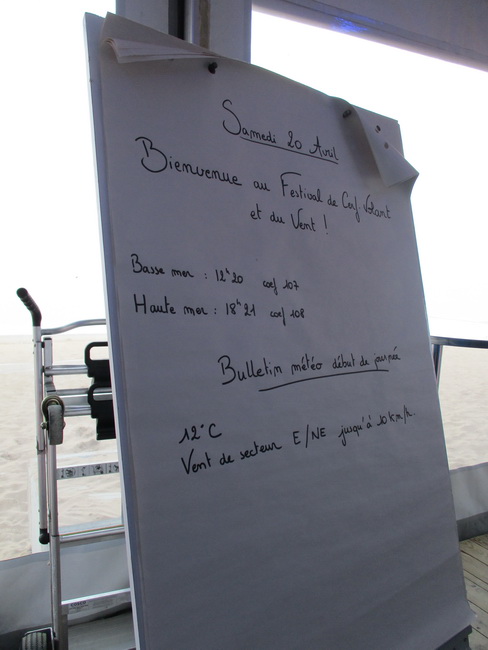 Samedi 20 Avril
Bienvenue au Festival de Cerf-Volant
et du Vent !
Basse mer : 12h20 coef 107
Haute mer : 18h21 coef 108
Bulletin météo début de journée
12°C
Vent de secteur E/NE jusqu'à 10 Km/h.